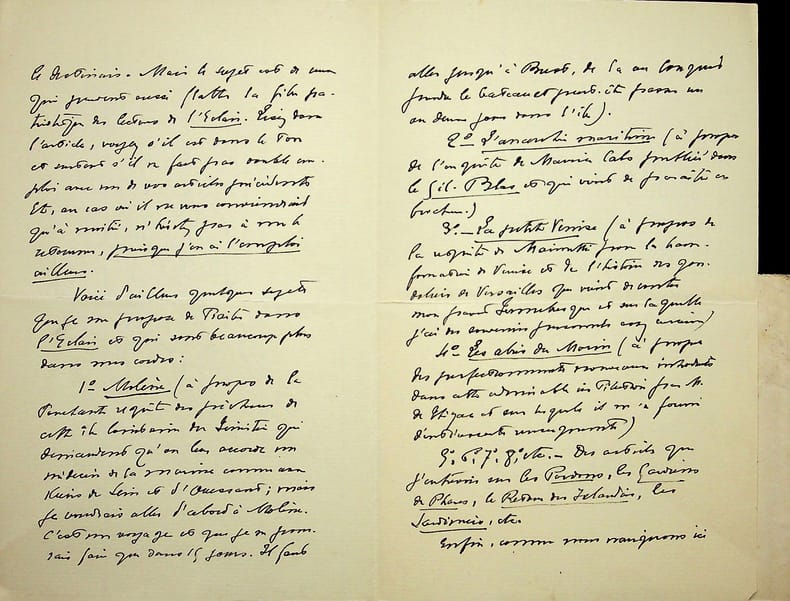 le destinais. Mais le sujet est de ceux
qui peuvent aussi flatter la fibre pa-
triotique des lecteurs de l'Eclair. Lisez donc
l'article, voyez s'il est dans le ton
et surtout s'il ne fait pas double em-
ploi avec un de vos articles précédents
Et, au cas où il ne vous conviendrait
qu'à moitié, n'hésitez pas à me le
retourner, puisque j'en ai l'emploi
ailleurs.
Voici d'ailleurs quelques sujets
que je me propose de traiter dans
l'Eclair et qui sont beaucoup plus
dans mes cordes :
1º Molène (à propos de la
touchante requête des pêcheurs de
cette île lointaine du Finistère qui
demandent qu'on leur accorde un
médecin de la marine comme aux
de Sein et d'Ouessant ; mais
je voudrais aller d'abord à Molène.
C'est un voyage et que je ne pour-
rais faire que dans 15 jours. Il faut
aller jusqu'à Brest, de là au Conquet
prendre le bateau et peut-être passer un
ou deux jours dans l'île).
2º L'anarchie maritime (à propos
de l'enquête de Maurice publiée dans
le Gil-Blas et qui vient de paraître en
brochure.)
3º - La petite Venise (à propos de
la requête de pour la
de Venise et de l'histoire des gon-
doliers de Versailles qui vint
mon grand et sur laquelle
j'ai des souvenirs assez curieux)
4º Les abris du Marin (à propos
des perfectionnements nouveaux introduits
dans cette admirable institution par M.
de Thézac et sur lesquels il m'a fourni
d'intéressants renseignements)
5º, 6º, 7º, 8º, etc. - Des articles que
j'entrevois sur les Pardons, les Gardiens
de Phares, le Retour des Islandais, les
Sardiniers, etc.
Enfin, comme nous manquons ici